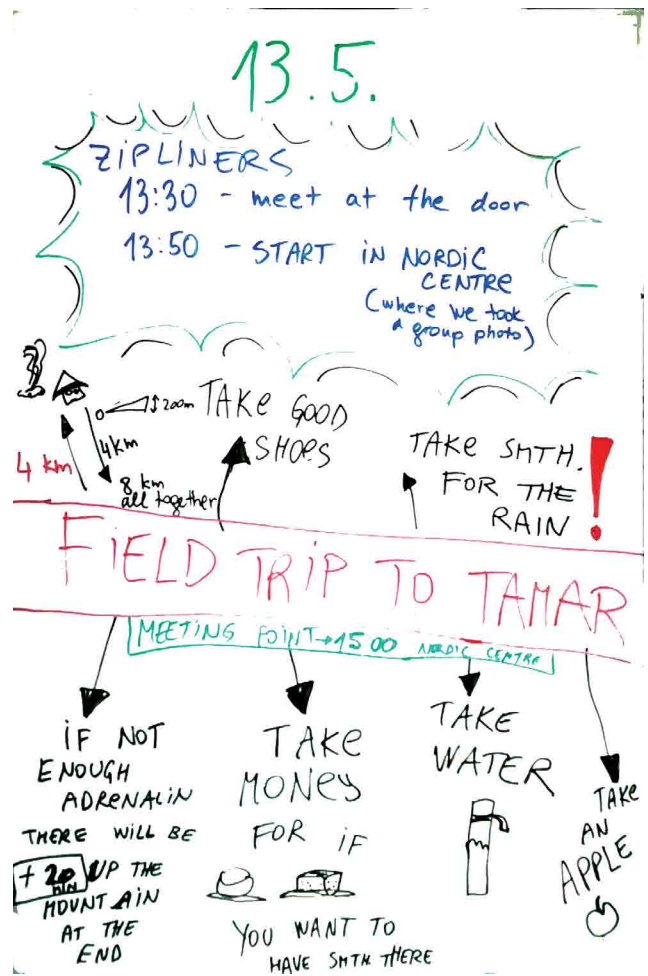 13.5.
ZiPLiNERS
13:30 - meet at the door
13:50 - START iN NORDiC
CENTRE
(where we took
a group photo)
0 200m
4km
4 km
8 km
all together
TAKe GOOD
SHOES
TAKe SMTH.
FOR THE
RAIN !
FiELD TRiP TO TAMAR
MEETiNG POiNT→1500 NORDIC CENTRE
iF NOT
ENOUGH
ADRENALiN
THERE WiLL BE
+ 20 MIN UP THE
MOUNTAiN
AT THE
END
TAKe
MONEY
FOR iF
YOU WANT TO
HAVE SMTH THERE
TAKE
WATER
TAKE
AN
APPLE